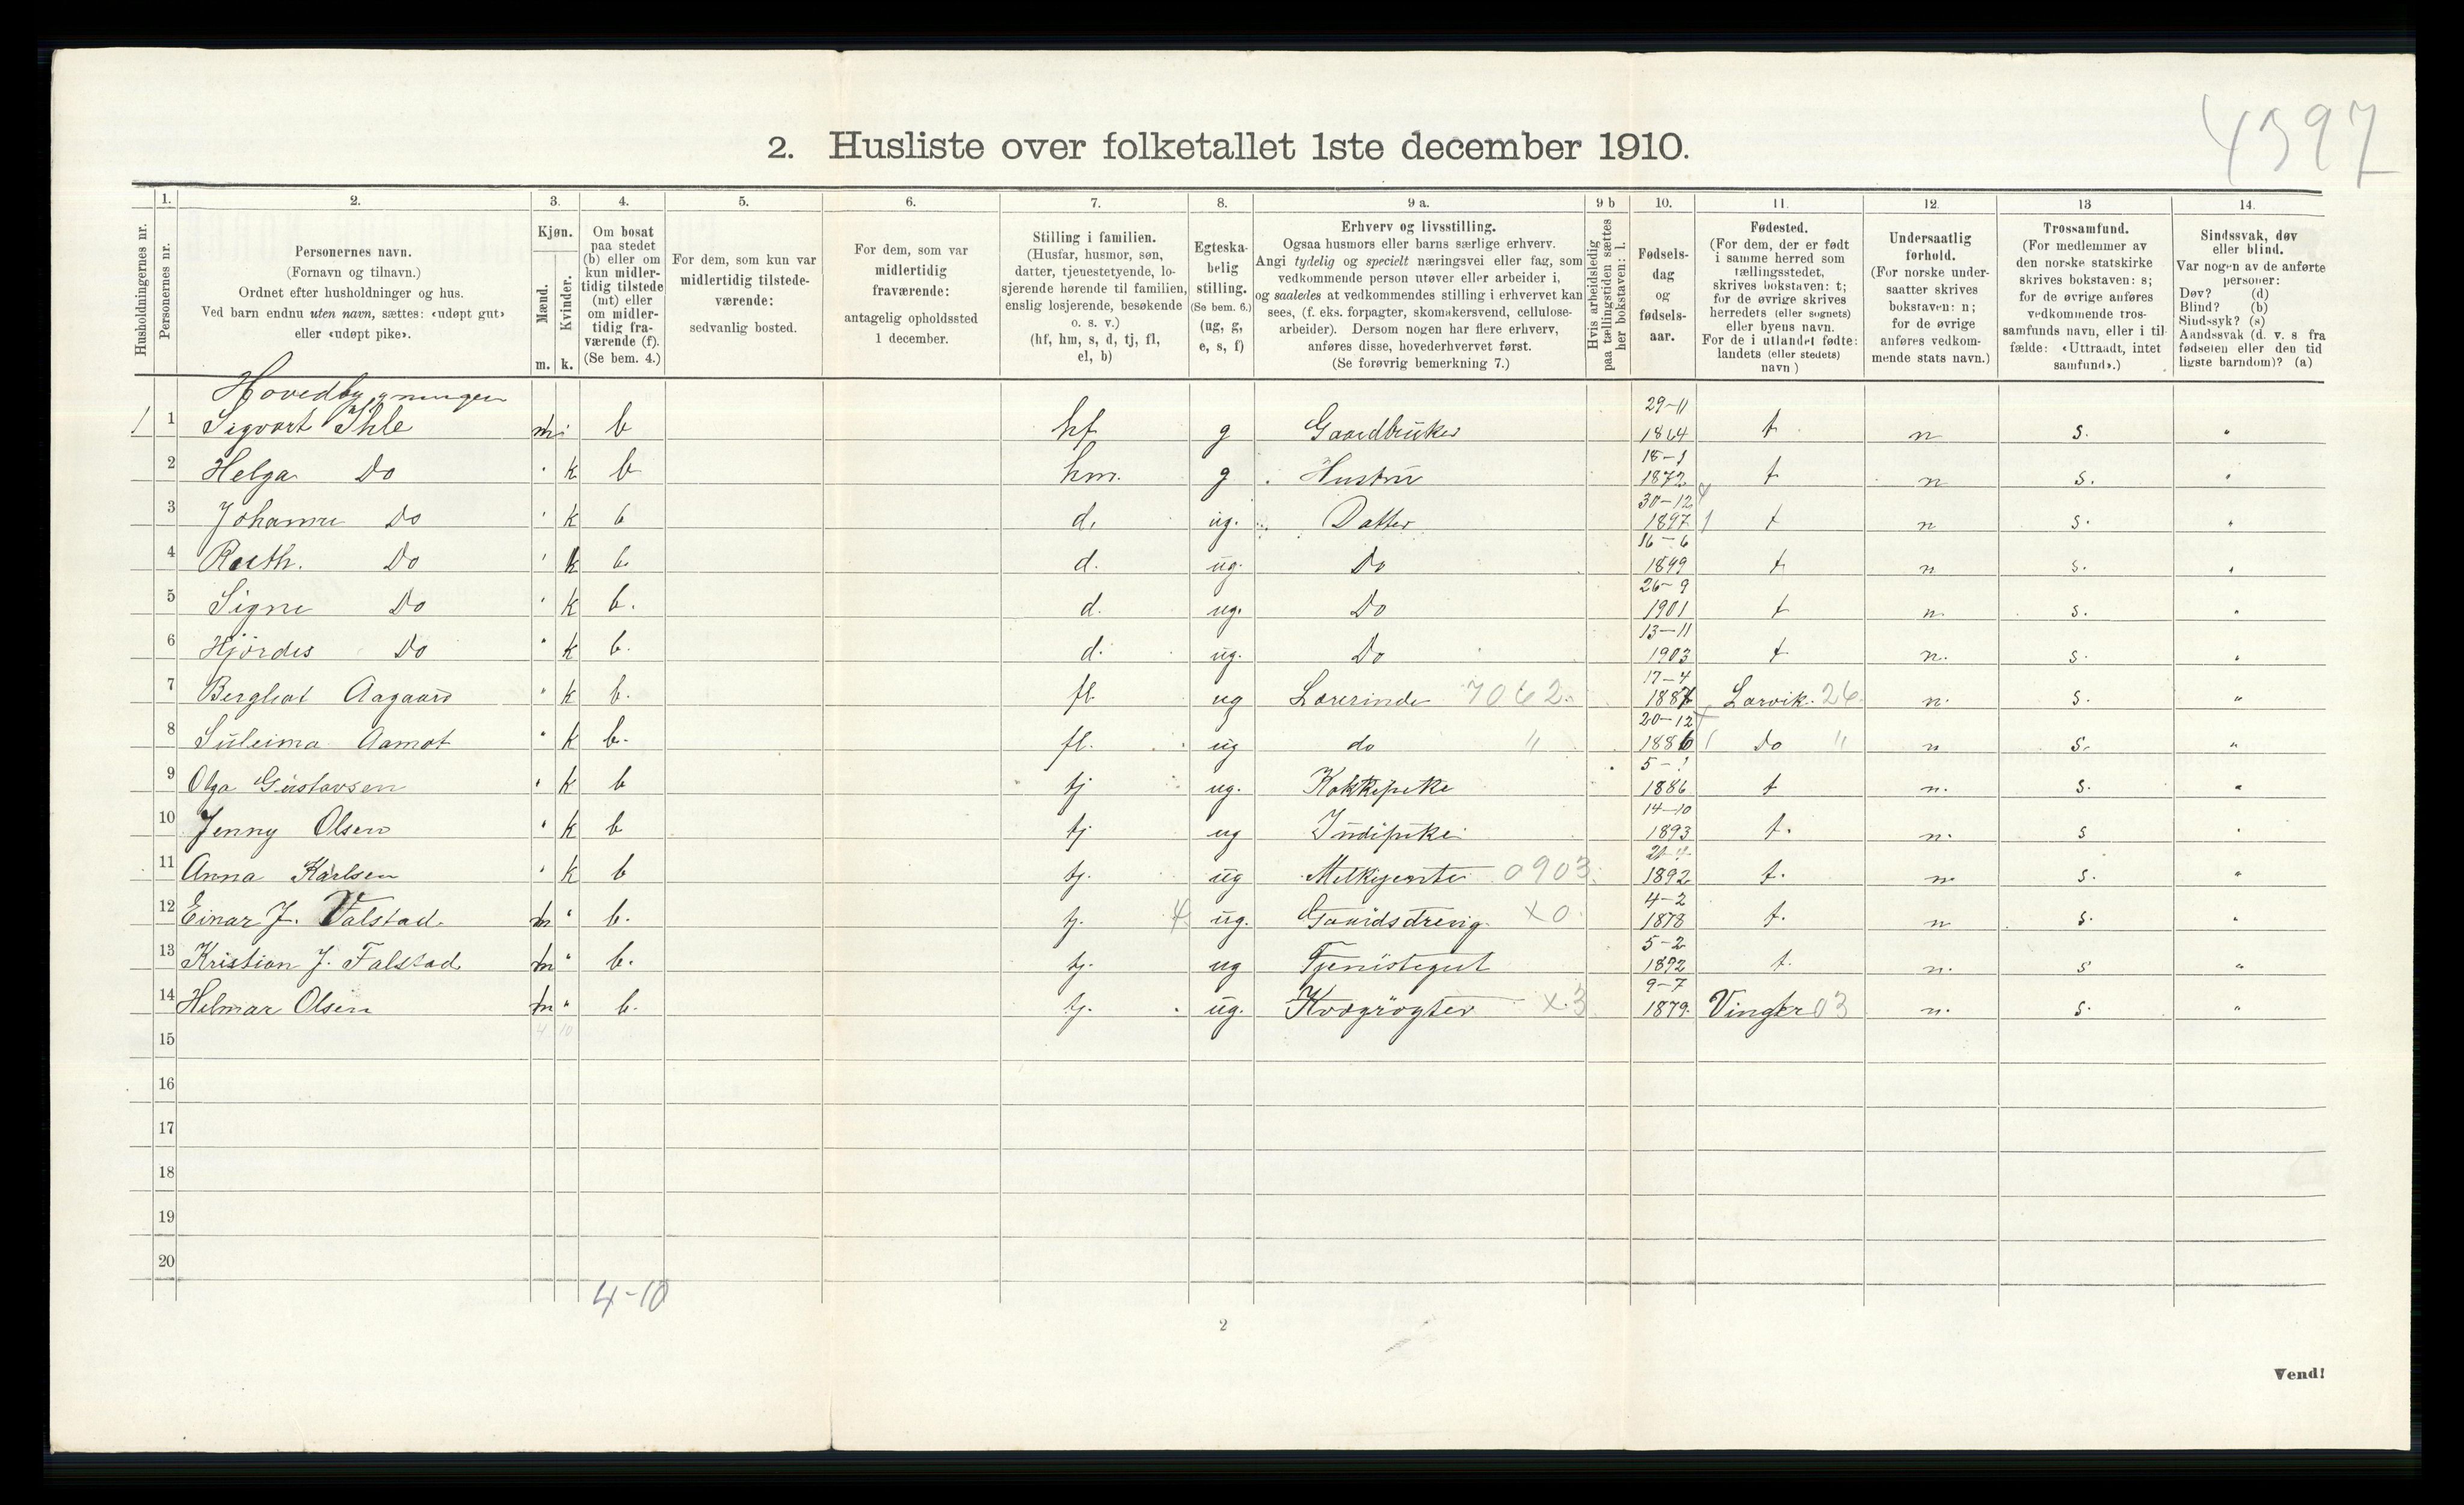 4397
2. Husliste over folketallet 1ste december 1910.
Husholdningernes nr.
1. Personernes nr.
2. Personernes navn. (Fornavn og tilnavn.) Ordnet efter husholdninger og hus. Ved barn endnu uten navn, sættes: «udøpt gut» eller «udøpt pike».
3. Kjøn. Mænd. m. Kvinder. k.
4. Om bosat paa stedet (b) eller om kun midlertidig tilstede (mt) eller om midlertidig fraværende (f). (Se bem. 4.)
5. For dem, som kun var midlertidig tilstedeværende: sedvanlig bosted.
6. For dem, som var midlertidig fraværende: antagelig opholdssted 1 december.
7. Stilling i familien. (Husfar, husmor, søn, datter, tjenestetyende, losjerende hørende til familien, enslig losjerende, besøkende o. s. v.) (hf, hm, s, d, tj, fl, el, b)
8. Egteskabelig stilling. (Se bem. 6.) (ug, g, e, s, f)
9 a. Erhverv og livsstilling. Ogsaa husmors eller barns særlige erhverv. Angi tydelig og specielt næringsvei eller fag, som vedkommende person utøver eller arbeider i, og saaledes at vedkommendes stilling i erhvervet kan sees, (f. eks. forpagter, skomakersvend, cellulosearbeider). Dersom nogen har flere erhverv, anføres disse, hovederhvervet først. (Se forøvrig bemerkning 7.)
9 b Hvis arbeidsledig paa tællingstiden sættes her bokstaven: l.
10. Fødselsdag og fødselsaar.
11. Fødested. (For dem, der er født i samme herred som tællingsstedet, skrives bokstaven: t; for de øvrige skrives herredets (eller sognets) eller byens navn. For de i utlandet fødte: landets (eller stedets) navn)
12. Undersaatlig forhold. (For norske undersaatter skrives bokstaven: n; for de øvrige anføres vedkommende stats navn.)
13 Trossamfund. (For medlemmer av den norske statskirke skrives bokstaven: s; for de øvrige anføres vedkommende trossamfunds navn, eller i tilfælde: «Uttraadt, intet samfund».)
14. Sindssvak, døv eller blind. Var nogen av de anførte personer: Døv? (d) Blind? (b) Sindssyk? (s) Aandssvak (d. v. s fra fødselen eller den tidligste barndom)? (a)
Hovedbygningen
1 1 Sigvart Ihle m b hf g Gaardbruker 29-11 1864 t n s.
2 Helga Do k b hm. g Hustru 18-1 1872 t n s.
3 Johanne Do k b d. ug. Datter 30-12 1897 t n s.
4 Ruth. Do k b. d. ug. Do 16-6 1899 t n s.
5 Signe Do k b. d. ug. Do 26-9 1901 t n. s.
6 Hjördes Do k b. d. ug. Do 13-11 1903 t n. s.
7 Bergliot Aagaard k b. fl ug Lærerinde 7062 17-4 1887 Larvik. 26 n. s.
8 Suleima Aamot k b. fl. ug do " 20-12 1886 Do " n s.
9 Olga Gustavsen k b tj ug. Kokkepike 5-1 1886 t n. s.
10 Jenny Olsen k b tj ug Indepike 14-10 1893 t. n. s
11 Anna Karlsen k b tj. ug Melkejente 0903 21-4 1892 t. n s.
12 Einar J. Falstad m b. tj. ug. Gaardsdreng x0 4-2 1878 t. n s.
13 Kristian J. Falstad m b. tj. ug Tjenestegut 5-2 1892 t. n. s
14 Helmar Olsen m b. tj. ug. Kvægrögter x3 9-7 1879. Vinger 03 n. s.
4 10
15
16
17
18
19
20
4-10
2
Vend!